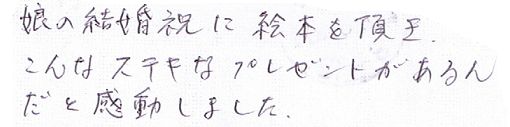 娘の結婚祝に絵本を頂き.
こんなステキなプレゼントがあるん
だと感動しました.